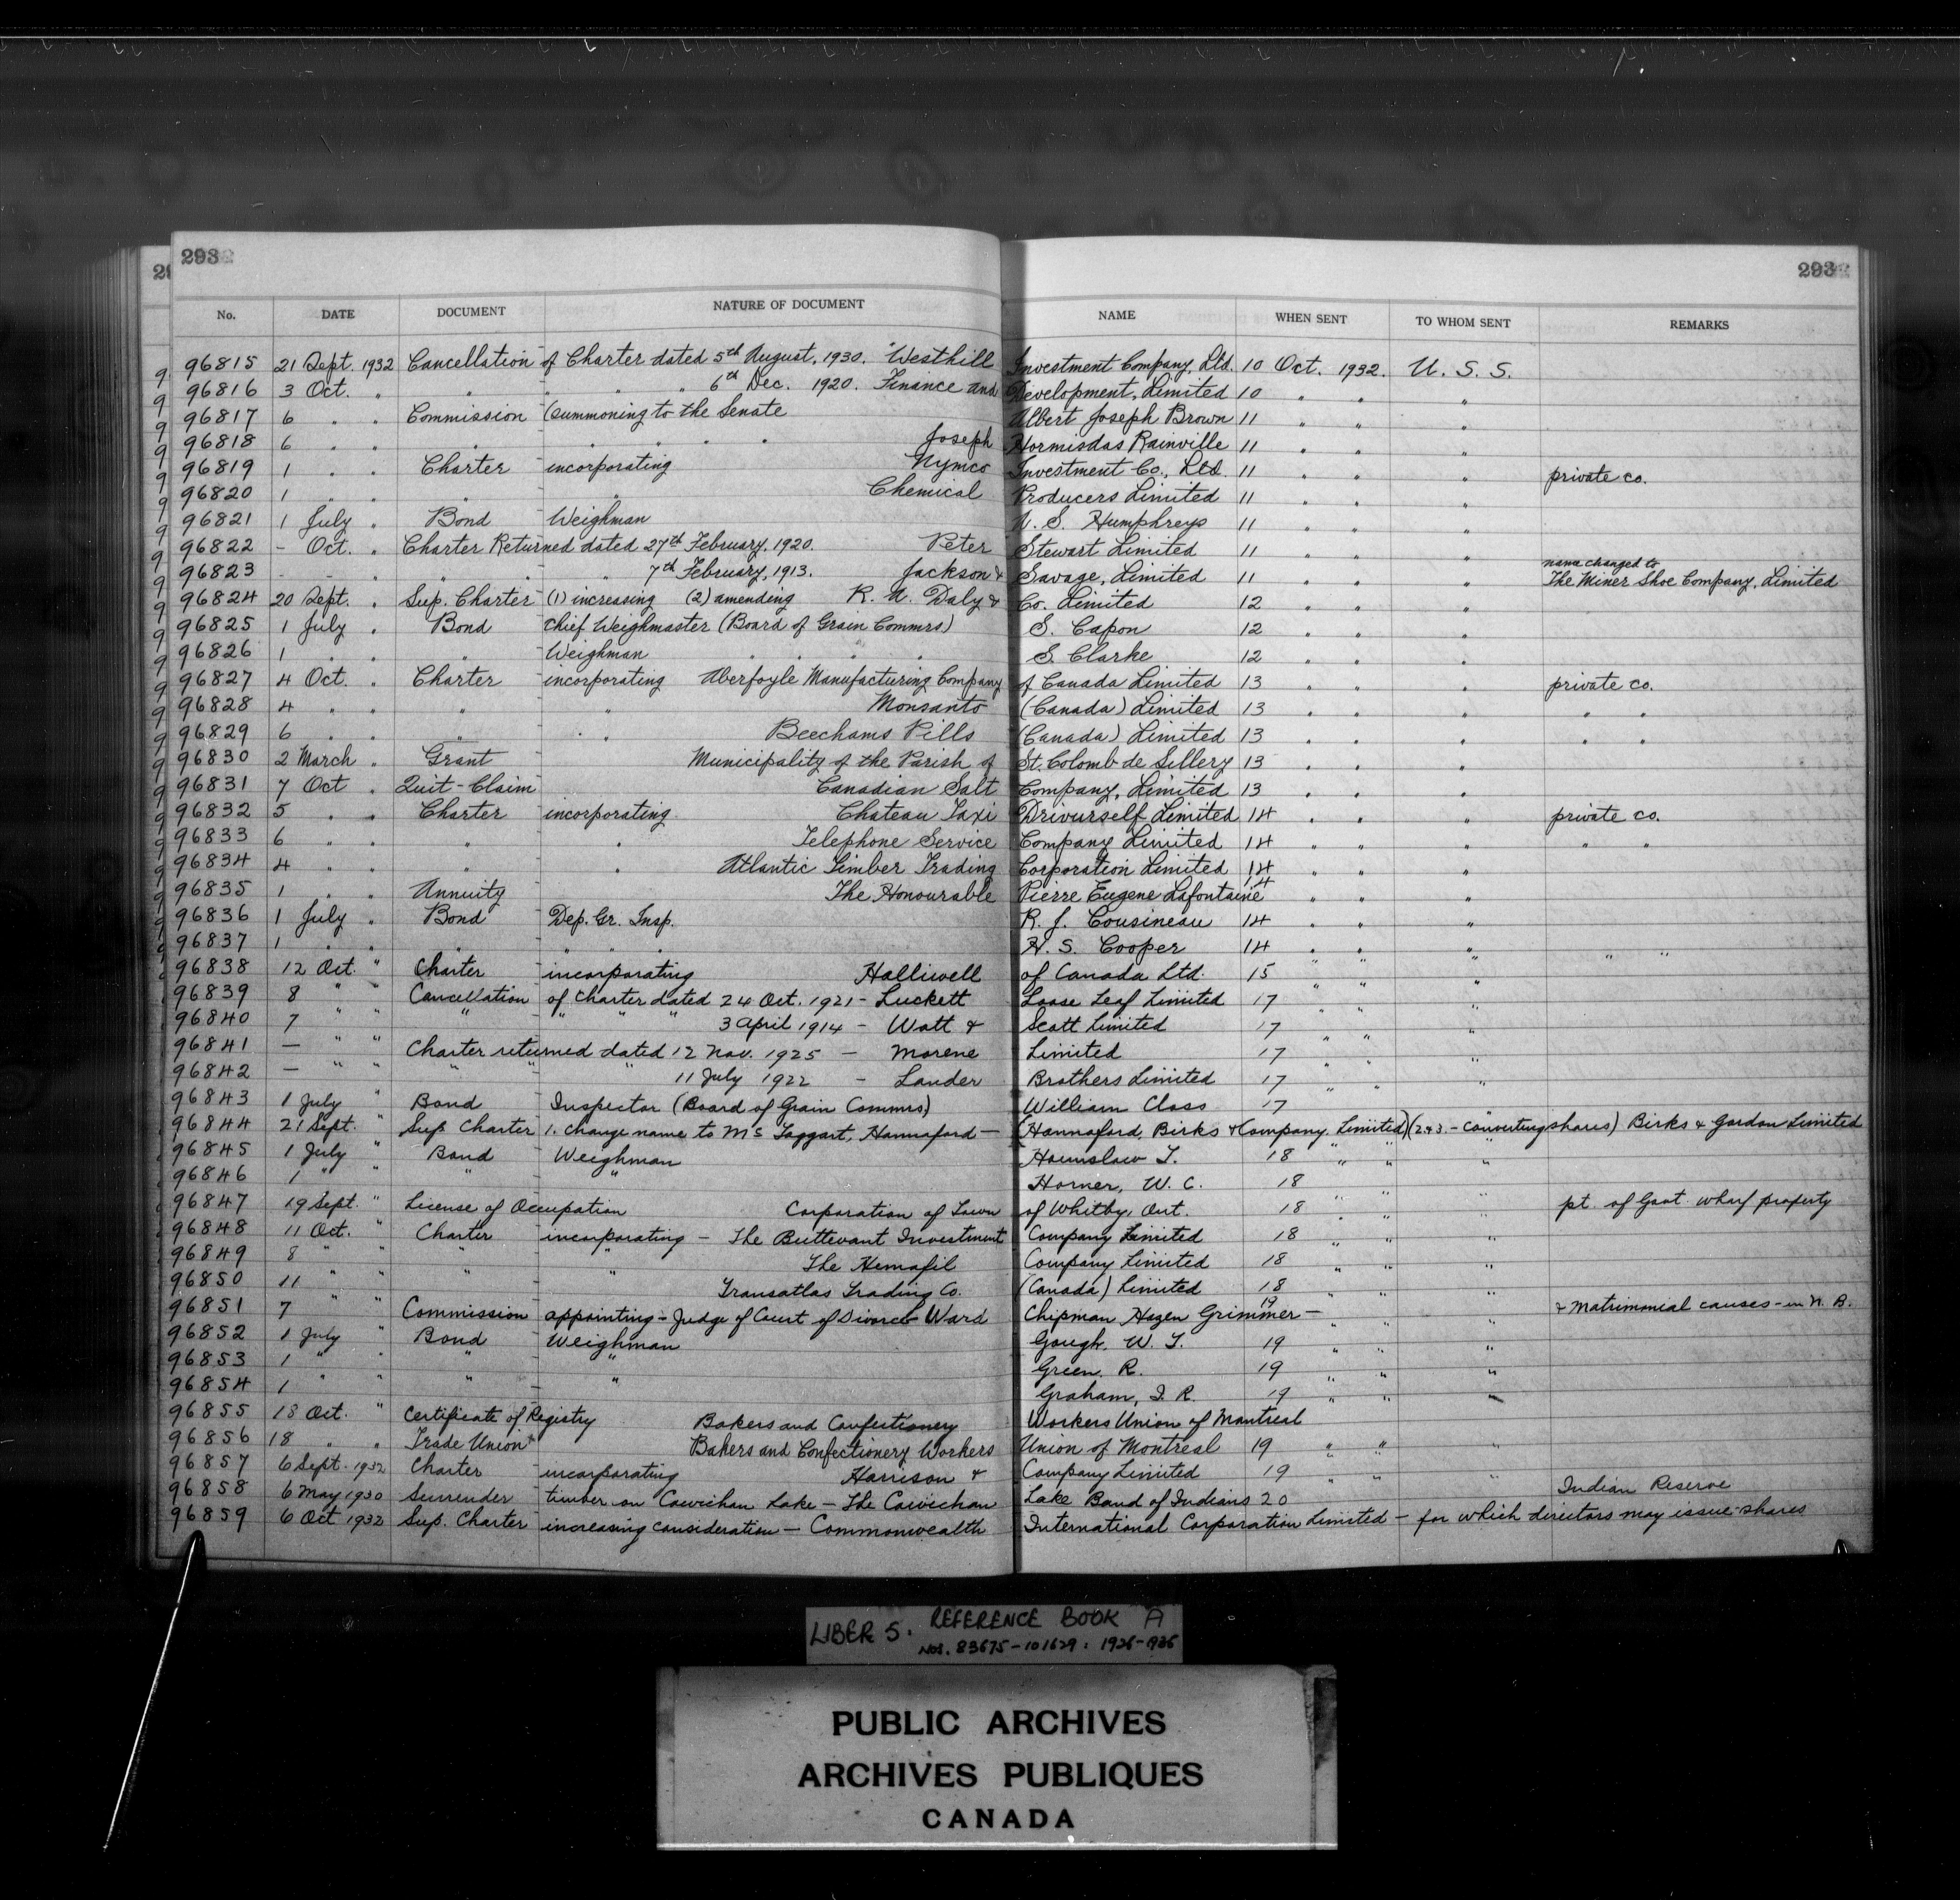 293
293
No. DATE DOCUMENT NATURE OF DOCUMENT NAME WHEN SENT TO WHOM SENT REMARKS
96815 21 Sept. 1932 Cancellation of Charter dated 5th August, 1930. Westhill Investment Company, Ltd. 10 Oct. 1932. U. S. S.
96816 3 Oct. " " " " " 6th Dec. 1920. Finance and Development, Limited 10 " " "
96817 6 " " Commission (summoning to the Senate Albert Joseph Brown 11 " " "
96818 6 " " " " " " " Joseph Hormisdas Rainville 11 " " "
96819 1 " " Charter incorporating Nymco Investment Co., Ltd. 11 " " " private co.
96820 1 " " " " Chemical Producers Limited 11 " " "
96821 1 July " Bond Weighman S. Humphreys 11 " " "
96822 - Oct. " Charter Returned dated 27th February, 1920. Peter Stewart Limited 11 " " "
96823 - - " " " " 7th February, 1913. Jackson & Savage, Limited 11 " " " name changed to The Miner Shoe Company, Limited
96824 20 Sept. " Sup. Charter (1) increasing (2) amending R. A. Daly & Co. Limited 12 " " "
96825 1 July " Bond Chief Weighmaster (Board of Grain Commrs) S. Capon 12 " " "
96826 1 " " " Weighman " " " " S. Clarke 12 " " "
96827 4 Oct. " Charter incorporating Aberfoyle Manufacturing Company of Canada Limited 13 " " " private co.
96828 4 " " " " Monsanto (Canada) Limited 13 " " " " "
96829 6 " " " " Beechams Pills (Canada) Limited 13 " " " " "
96830 2 March " Grant Municipality of the Parish of St. Colomb de Sillery 13 " " "
96831 7 Oct " Quit-Claim Canadian Salt Company, Limited 13 " " "
96832 5 " " Charter incorporating Chateau Taxi Drivurself Limited 14 " " " private co.
96833 6 " " " " Telephone Service Company Limited 14 " " " " "
96834 4 " " " " Atlantic Timber Trading Corporation Limited 14 " " "
96835 1 " " Annuity The Honourable Pierre Eugene Lafontaine 14 " " "
96836 1 July " Bond Dep. Gr. Insp. R. J. Cousineau 14 " " "
96837 1 " " " " " " H. S. Cooper 14 " " "
96838 12 Oct. " Charter incorporating Halliwell of Canada Ltd. 15 " " " " "
96839 8 " " Cancellation of Charter dated 24 Oct. 1921 - Luckett Loose Leaf Limited 17 " " "
96840 7 " " " " " " 3 April 1914 - Watt & Scott Limited 17 " " "
96841 — " " Charter returned dated 12 Nov. 1925 - Morene Limited 17 " " "
96842 — " " " " " 11 July 1922 - Lander Brothers Limited 17 " " "
96843 1 July " Bond Inspector (Board of Grain Commrs) William Class 17 " " "
96844 21 Sept. " Sup Charter 1. Change name to McTaggart, Hannaford — (Hannaford, Birks & Company. Limited) (2 & 3. - converting shares) Birks & Gordon Limited
96845 1 July " Bond Weighman Hounslow T. 18 " " "
96846 1 " " " " Horner, W. C. 18 " " "
96847 19 Sept. " License of Occupation Corporation of Town of Whitby, Ont. 18 " " " pt. of Govt. wharf property
96848 11 Oct. " Charter incorporating - The Buttevant Investment Company Limited 18 " " "
96849 8 " " " " The Hemafil Company Limited 18 " " "
96850 11 " " " " Transatlas Trading Co. (Canada) Limited 18 " " "
96851 7 " " Commission appointing - Judge of Court of Divorce Ward Chipman Hazen Grimmer — 19 " " " & Matrimonial causes - in N. B.
96852 1 July " Bond Weighman Gough, W. T. 19 " " "
96853 1 " " " " Green, R. 19 " " "
96854 1 " " " " Graham, J. R. 19 " " "
96855 18 Oct. " Certificate of Registry Bakers and Confectionery Workers Union of Montreal
96856 18 " " Trade Union Bakers and Confectionery Workers Union of Montreal 19 " " "
96857 6 Sept. 1932 Charter incorporating Harrison & Company Limited 19 " " "
96858 6 May 1930 Surrender timber on Cowichan Lake - The Cowichan Lake Band of Indians 20 Indian Reserve
96859 6 Oct 1932 Sup. Charter increasing consideration — Commonwealth International Corporation Limited - for which directors may issue shares
LIBER 5. REFERENCE BOOK A
NOS. 83675-101629: 1926-1936
PUBLIC ARCHIVES
ARCHIVES PUBLIQUES
CANADA